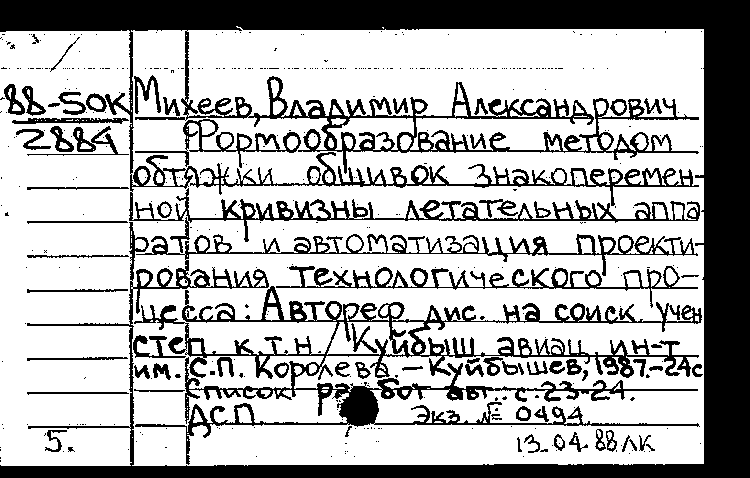 88-50К Михеев, Владимир Александрович
2884 Формообразование методом
обтяжки обшивок знакоперемен-
ной кривизны летательных аппа
ратов и автоматизация проекти-
рования технологического про-
цесса: Автореф. дис. на соиск. учен
степ. к.т.н. / Куйбыш. авиац. ин-т
им. С.П. Королева. – Куйбышев, 1987.-24с
Список работ авт.: с.23-24.
ДСП. Экз. № 0494
5. 13.04.88 ЛК